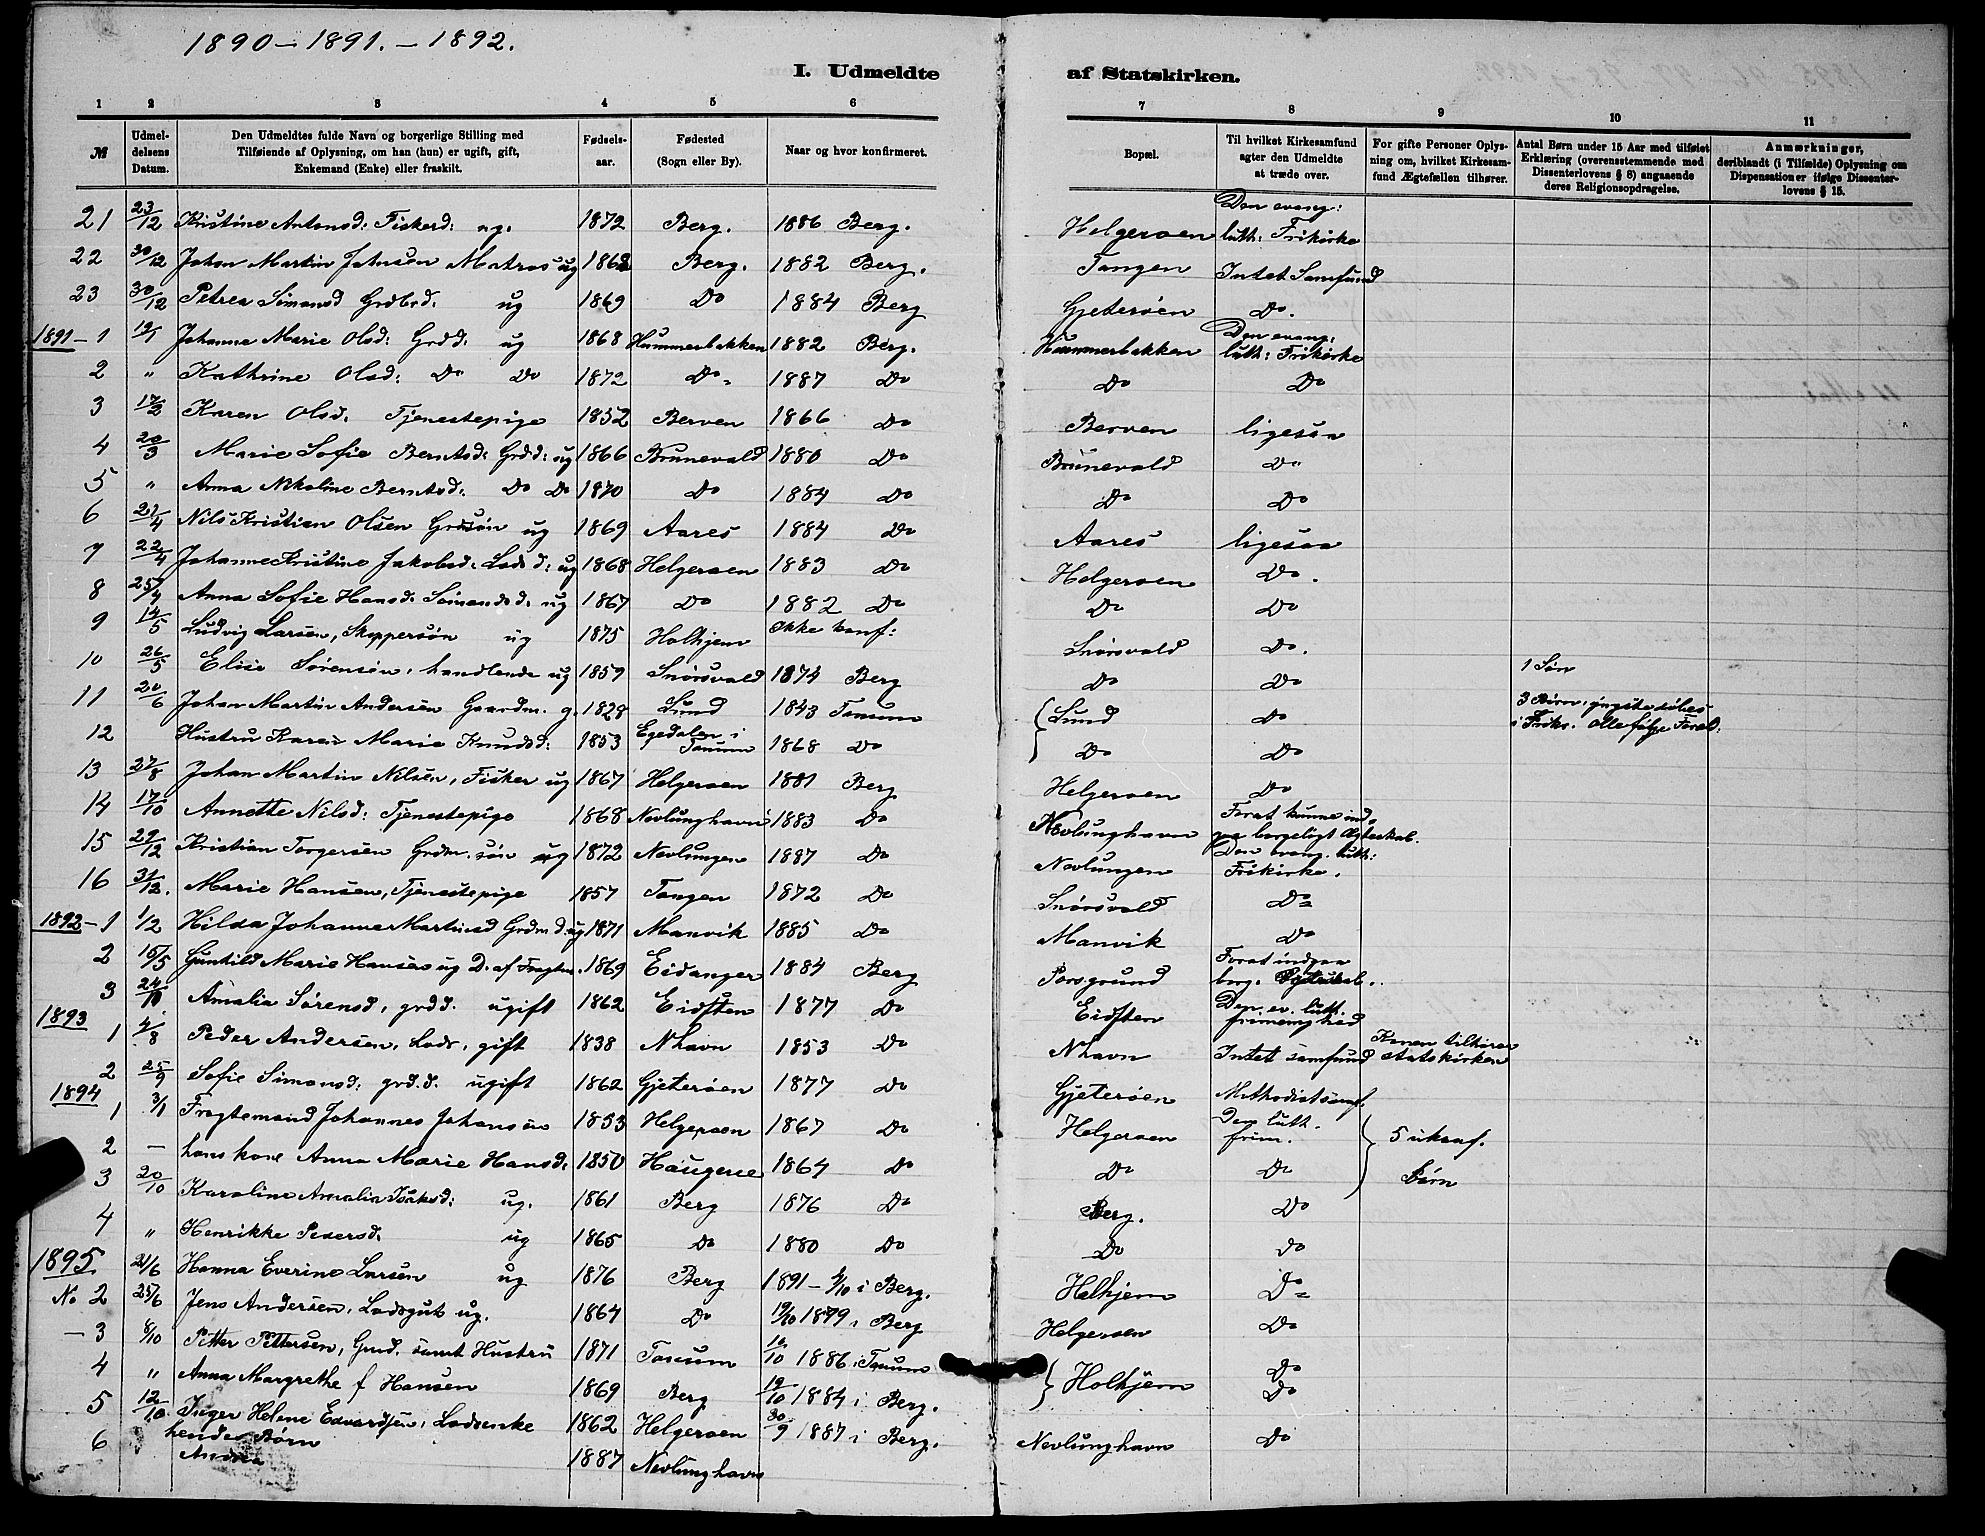 1890 - 1891. - 1892.
I. Udmeldte af Statskirken.
1 2 3 4 5 6 7 8 9 10 11
№ | Udmeldelsens Datum. | Den Udmeldtes fulde Navn og borgerlige Stilling med Tilføiende af Oplysning, om han (hun) er ugift, gift, Enkemand (Enke) eller fraskilt. | Fødselsaar. | Fødested (Sogn eller By). | Naar og hvor konfirmeret. | Bopæl. | Til hvilket Kirkesamfund agter den Udmeldte at træde over. | For gifte Personer Oplysning om, hvilket Kirkesamfund Ægtefællen tilhører. | Antal Børn under 15 Aar med tilføiet Erklæring (overensstemmende med Dissenterlovens § 6) angaaende deres Religionsopdragelse. | Anmærkninger, deriblandt (i Tilfælde) Oplysning om Dispensationer ifølge Dissenterlovens § 15.
21 23/12 Kristine Antonsd: Fiskerd: ug. 1872 Berg. 1886 Berg. Helgeroen Den evang: luth: Frikirke
22 30/12 Johan Martin Johnsen Matros ug 1862 Berg. 1882 Berg. Tangen Intet Samfund
23 30/12 Petrea Simonsd Grdbrd. ug 1869 Do 1884 Berg Gjeterøen Do.
1891 - 1 19/1 Johanne Marie Olsd: Grdd: ug 1868 Hummerbakken 1882 Berg. Hummerbakken Den evang: luth: Frikirke
2 " Kathrine Olsd: Do Do 1872 Do 1887 Do Do Do
3 17/3 Karen Olsd. Tjenestepige 1852 Berven 1866 Do Berven ligesaa
4 20/3 Marie Sofie Berntsd: Grdd: ug 1866 Brunevald 1880 Do Brunevald Do
5 " Anna Nikoline Berntsd: Do Do 1870 Do 1884 Do Do Do
6 21/4 Nils Kristian Olsen Grdsøn ug 1869 Aares 1884 Do Aares ligesaa
7 22/4 Johanne Kristine Jakobsd: Lods d: ug 1868 Helgeroen 1883 Do Helgeroen Do.
8 25/4 Anna Sofie Hansd: Sømandsd: ug 1867 Do 1882 Do Do Do
9 14/5 Ludvig Larsen, Skippersøn ug 1875 Holkjem Ikke konf: Snørsvald Do.
10 26/5 Elise Sørensen, handlende ug 1859 Snørsvald 1874 Berg Do Do 1 Søn
11 20/6 Johan Martin Andersen Gaardm. g. 1828 Lund 1843 Tanum Lund Do 3 Børn, yngste døbes i Frik. Alle følge Foræl.
12 Hustru Karen Marie Knudsd: 1853 Egedalen i Tanum 1868 Do Do Do
13 27/8 Johan Martin Nilsen, Fisker ug 1867 Helgeroen 1881 Berg Helgeroen Do
14 17/10 Annette Nilsd: Tjenestepige 1868 Nevlunghavn 1883 Do Nevlunghavn Forat kunne indgaa borgeligt Ægteskab.
15 29/12 Kristian Torgersen Grdm. søn ug 1872 Nevlungen 1887 Do Nevlungen Den evang. luth: Frikirke.
16 31/12. Marie Hansen, Tjenestepige 1857 Tangen 1872 Do Snørsvald Do
1892 - 1 1/2 Hilda Johanne Martinsd Grdm d: ug 1871 Manvik 1885 Do Manvik Do
2 16/5 Gunhild Marie Hansen ug D. af Fragtm. 1869 Eidanger 1884 Berg Porsgrund Forat indgaa borg.
3 24/10 Amalia Sørensd, grdd. ugift 1862 Eidsten 1877 Do Eidsten Den. ev. luth. frimenighed
1893
1 4/8 Peder Andersen, Lods, gift 1838 Nhavn 1853 Do Nhavn Intet samfund Konen tilhører statskirken
2 25/9 Sofie Simonsd: grd.d. ugift 1862 Gjeterøen 1877 Do Gjeterøen Methodistsamf.
1894
1 3/1 Fragtemand Johannes Johansen 1853 Helgeroen 1867 Do Helgeroen Den luth. frim. 5 ukonf. Børn
2 — hans kone Anna Marie Hansd: 1850 Haugene 1864 Do Do Do
3 20/10 Karoline Amalia Isaksd: ug. 1861 Berg 1876 Do Berg. Do
4 " Henrikke Pedersd. ug 1865 Do 1880 Do Do Do
1895. 21/6 Hanna Everine Larsen ug 1876 Berg 1891 - 4/10 i Berg. Holkjem Do
No 2 25/6 Jens Andersen, Lodsgut ug. 1864 Do 19/10 1879 i Berg Helgeroen Do
- 3 8/10 Petter Pettersen, Grd. samt Hustru 1871 Tanum 10/10 1886 i Tanum Holkjem Do
4 " Anna Margrethe f Hansen 1869 Berg 19/10 1884 i Berg. Do
5 12/10 Inger Helene Edvardsen, Lodsenke 1862 Helgeroen 30/9 1887 i Berg. Nevlunghavn Do
6 hendes Børn
Andrea 1887 Nevlunghavn